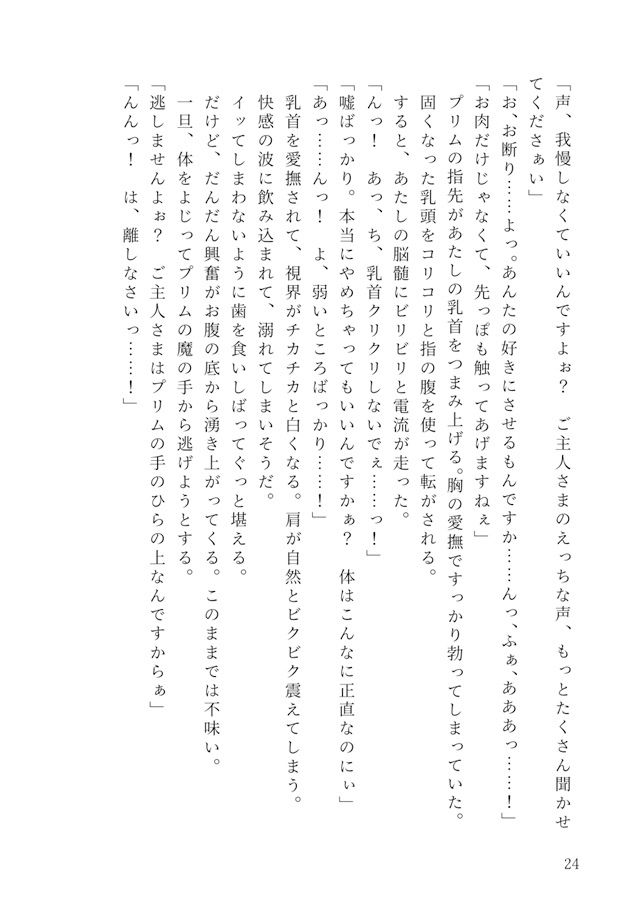 「声、我慢しなくていいんですよぉ？　ご主人さまのえっちな声、もっとたくさん聞かせ
てくださぁい」
「お、お断り……よっ。あんたの好きにさせるもんですか……んっ、ふぁ、あああっ……！」
「お肉だけじゃなくて、先っぽも触ってあげますねぇ」
　プリムの指先があたしの乳首をつまみ上げる。胸の愛撫ですっかり勃ってしまっていた。
固くなった乳頭をコリコリと指の腹を使って転がされる。
　すると、あたしの脳髄にビリビリと電流が走った。
「んっ！　あっ、ち、乳首クリクリしないでぇ……っ！」
「嘘ばっかり。本当にやめちゃってもいいんですかぁ？　体はこんなに正直なのにぃ」
「あっ……んっ！　よ、弱いところばっかり……！」
　乳首を愛撫されて、視界がチカチカと白くなる。肩が自然とビクビク震えてしまう。
快感の波に飲み込まれて、溺れてしまいそうだ。
　イッてしまわないように歯を食いしばってぐっと堪える。
　だけど、だんだん興奮がお腹の底から湧き上がってくる。このままでは不味い。
　一旦、体をよじってプリムの魔の手から逃げようとする。
「逃しませんよぉ？　ご主人さまはプリムの手のひらの上なんですからぁ」
「んんっ！　は、離しなさいっ……！」
24